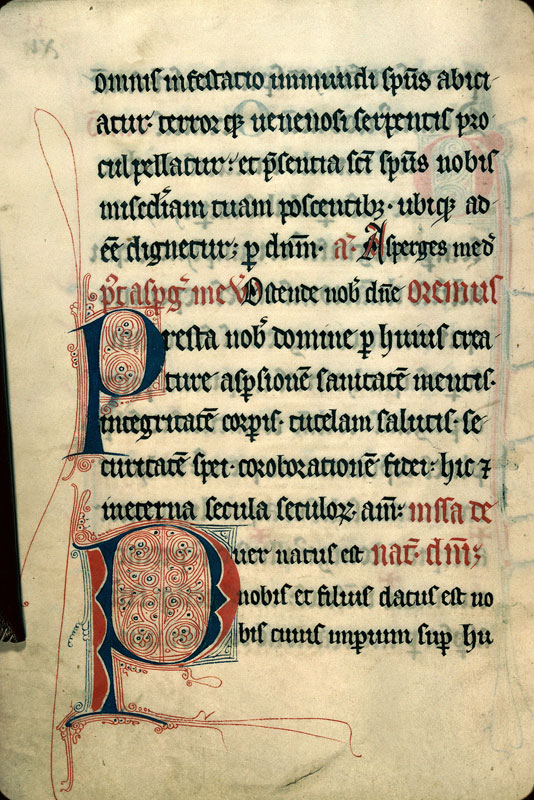 omnis infestatio inmundi sp̄us abici
atur· terror q̄ȝ uenenosi serpentis pro
cul pellatur· et p̄sentia sc̄i sp̄us nobis
mised̄iam tuam poscentibȝ· ubiqȝ ad
eē dignetur; p dn̄m· a. Asperges med
p't asp̄ḡ me V̄ Ostende nob̄ dn̄e oremus
Presta nob̄ domine p̱ huius crea
ture asp̱sionē sanitatē mentis·
integritatē corp̱is· tutelam salutis· se
curitatē spei· coroborationē fidei· hic ⁊
ineterna secula seculoꝝ· am̄: missa de
Puer natus est nat̄· dn̄i;
nobis et filius datus est no
bis cuius imp̱ium sup̱ hu